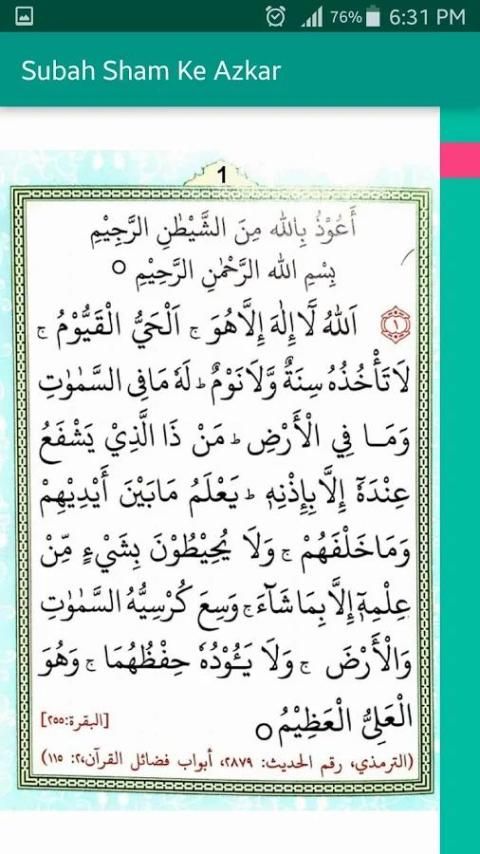 76% 6:31 PM
Subah Sham Ke Azkar
1
أَعُوْذُ بِاللهِ مِنَ الشَّيْطٰنِ الرَّجِيْمِ
بِسْمِ اللهِ الرَّحْمٰنِ الرَّحِيْمِ ○
۱ اَللهُ لَآ اِلٰهَ اِلَّا هُوَ ۚ اَلْحَيُّ الْقَيُّوْمُ ۚ
لَا تَأْخُذُهٗ سِنَةٌ وَّلَا نَوْمٌ ؕ لَهٗ مَا فِی السَّمٰوٰتِ
وَمَا فِي الْأَرْضِ ؕ مَنْ ذَا الَّذِيْ يَشْفَعُ
عِنْدَهٗٓ إِلَّا بِإِذْنِهٖ ؕ يَعْلَمُ مَا بَيْنَ أَيْدِيْهِمْ
وَمَا خَلْفَهُمْ ۚ وَلَا يُحِيْطُوْنَ بِشَيْءٍ مِّنْ
عِلْمِهٖٓ إِلَّا بِمَا شَآءَ ۚ وَسِعَ كُرْسِيُّهُ السَّمٰوٰتِ
وَالْأَرْضَ ۚ وَلَا يَـُٔوْدُهٗ حِفْظُهُمَا ۚ وَهُوَ
الْعَلِيُّ الْعَظِيْمُ ○ [البقرة:٢٥٥]
(الترمذي، رقم الحديث: ٢٨٧٩، أبواب فضائل القرآن،٢: ١١٥)